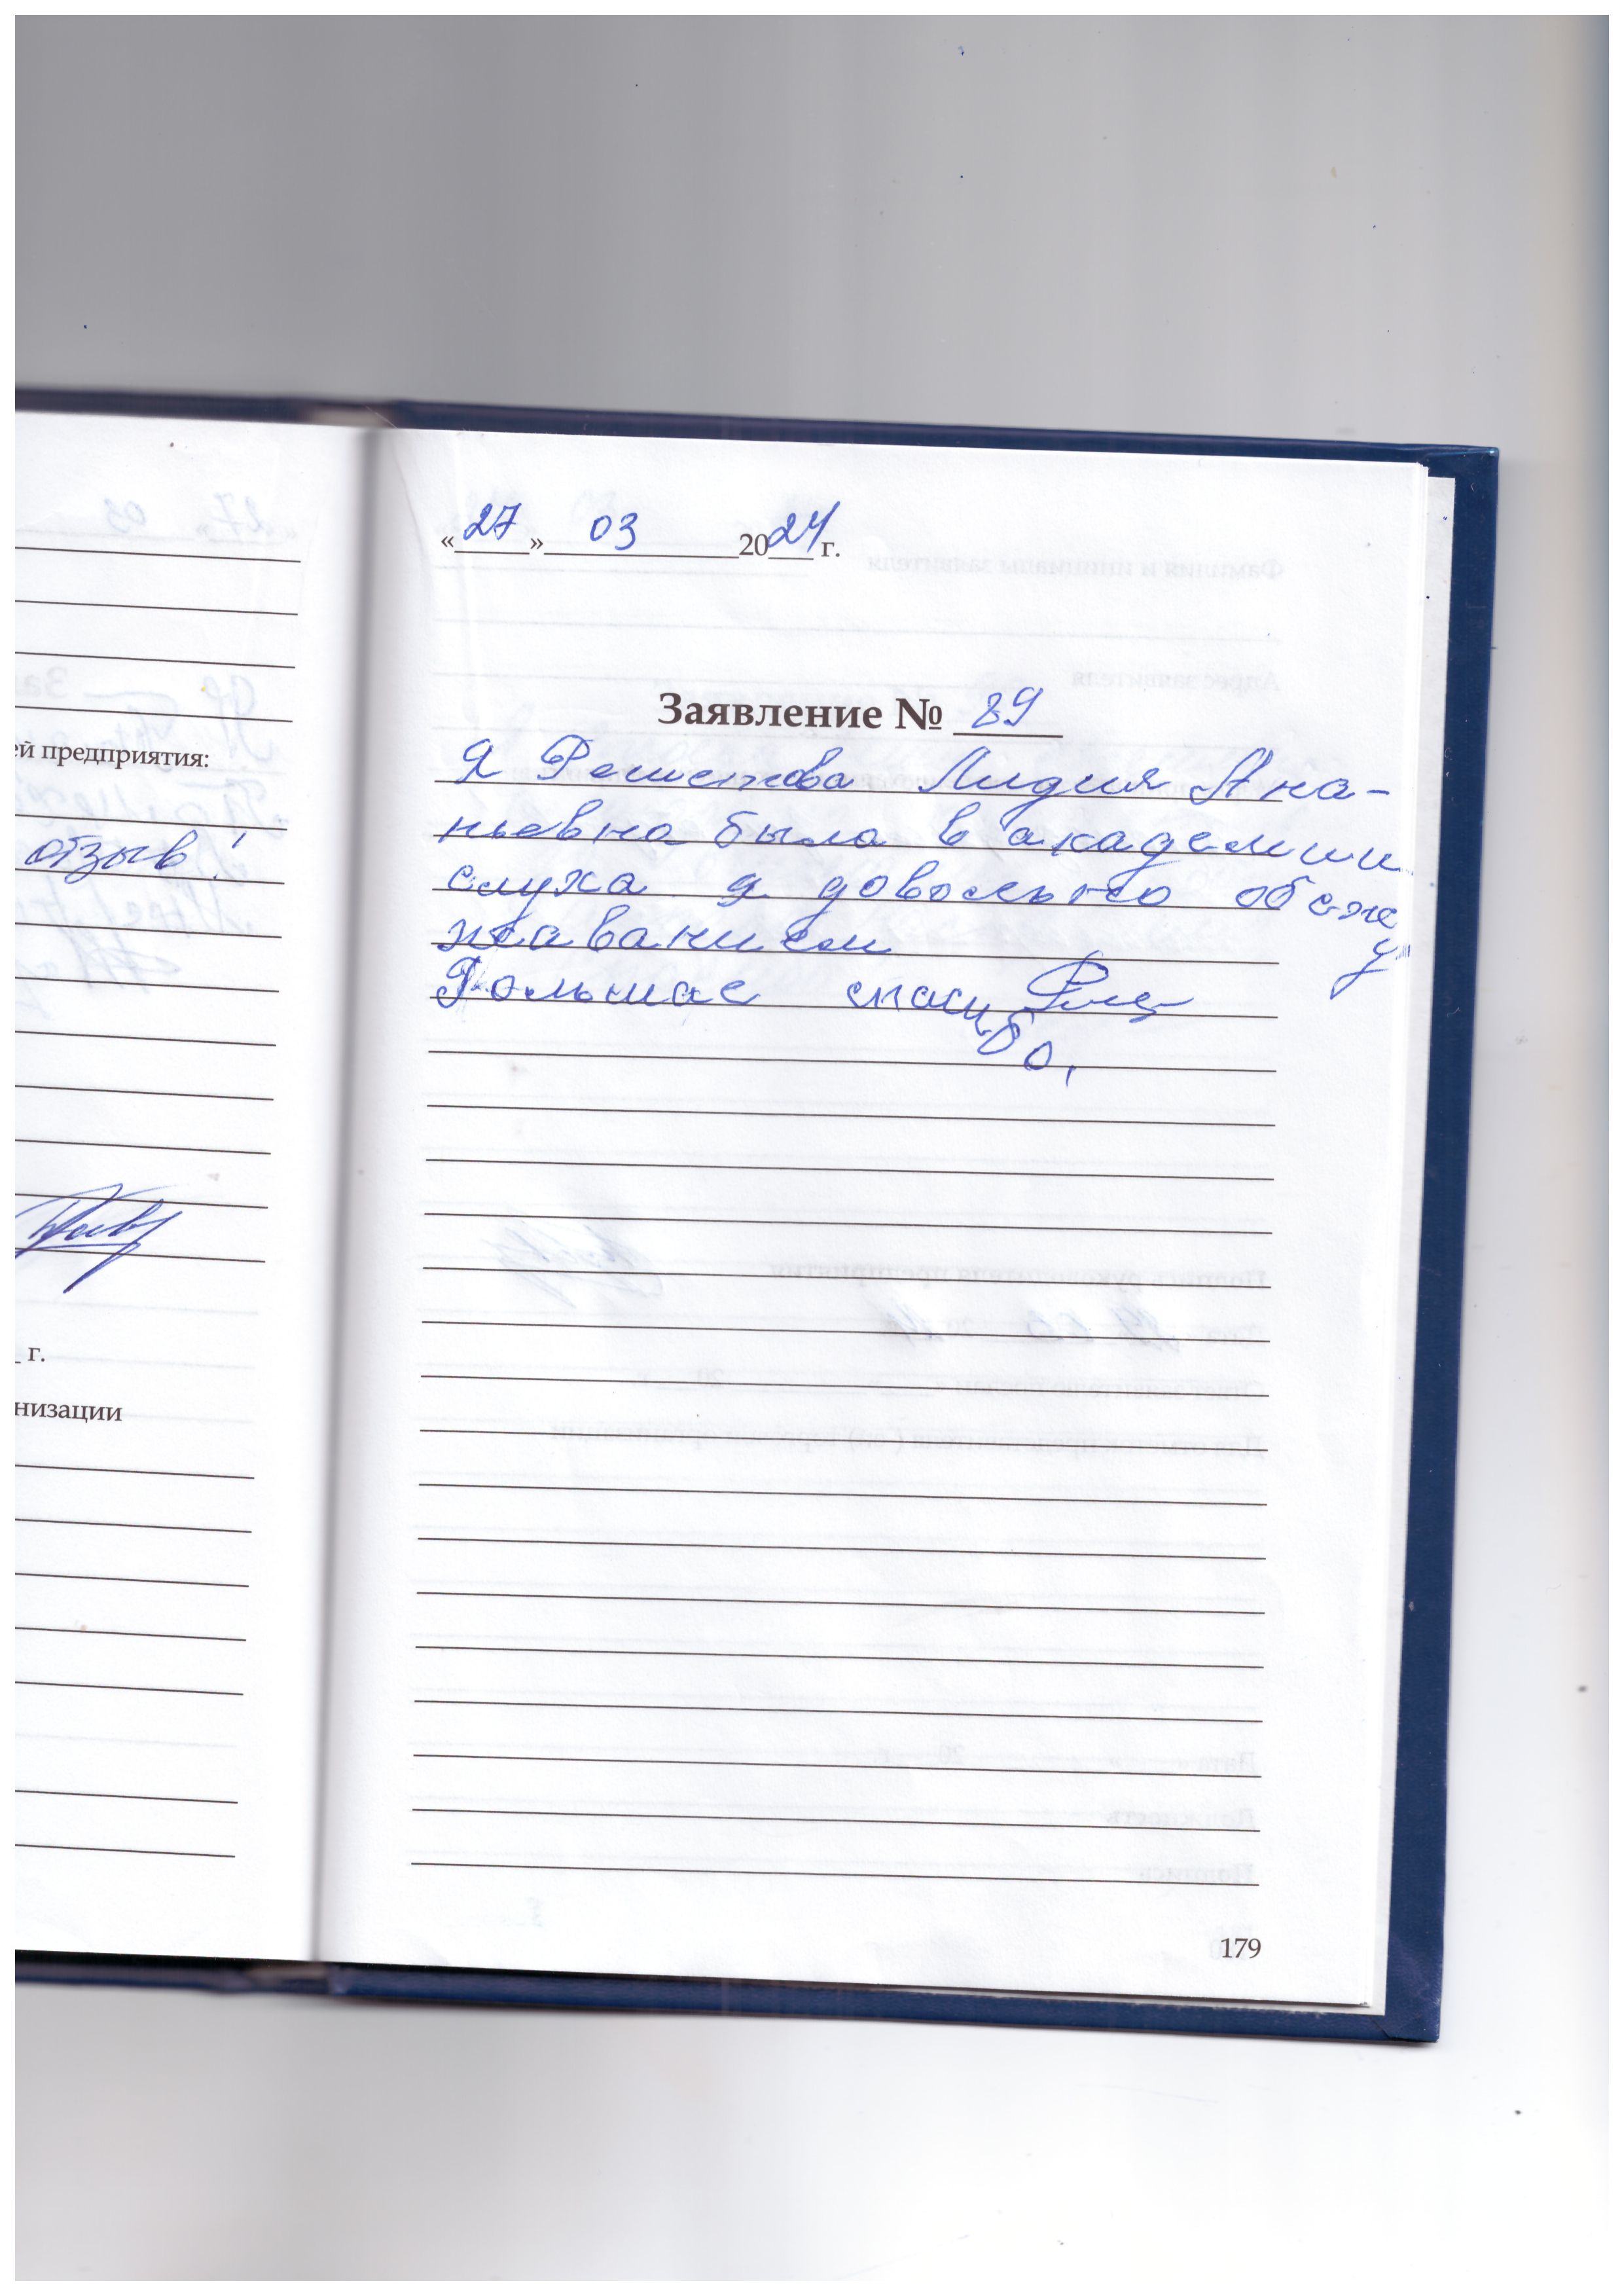 ей предприятия:
отзыв!
г.
низации
«27» 03 2024 г.
Заявление № 89
Я Решетова Лидия Ана-
ньевна была в академии
слуха я довольно обслу
живанием
Большае спасибо,
179